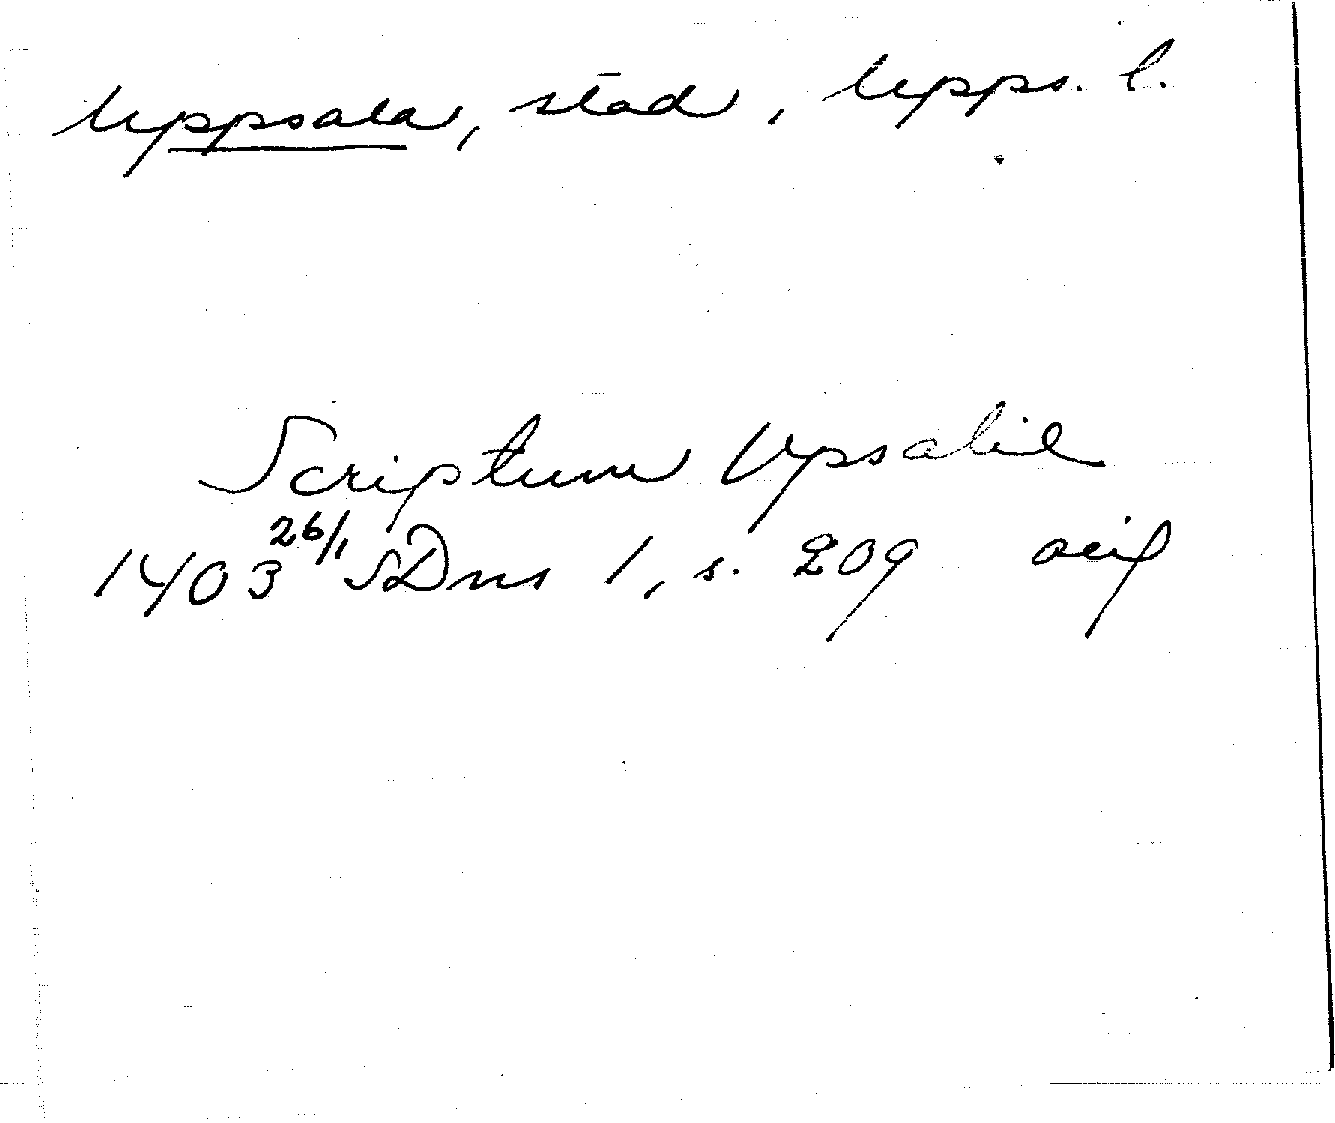 Uppsala, stad, Upps. l.
Scriptum Upsalie
1403 26/1 SDns 1, s. 209